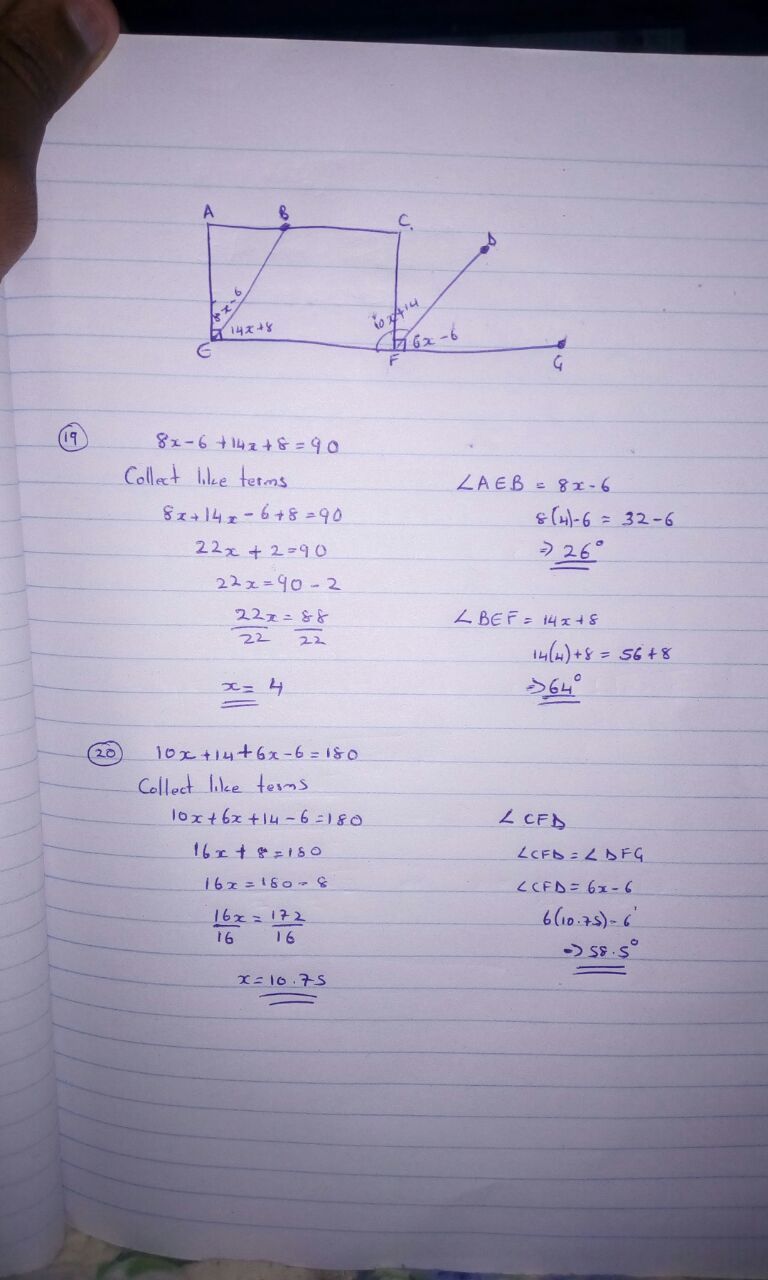 A B C. D
8x-6
14x+8
10x+14
6x-6
E F G
19 8x-6+14x+8=90
Collect like terms
8x+14x-6+8=90
22x+2=90
22x=90-2
22x = 88
22 22
x= 4
∠AEB = 8x-6
8(4)-6 = 32-6
⇒ 26°
∠BEF = 14x+8
14(4)+8 = 56+8
⇒ 64°
20 10x+14+6x-6=180
Collect like terms
10x+6x+14-6=180
16x+8=180
16x=180-8
16x = 172
16 16
x=10.75
∠CFD
∠CFD=∠DFG
∠CFD=6x-6
6(10.75)-6
⇒ 58.5°